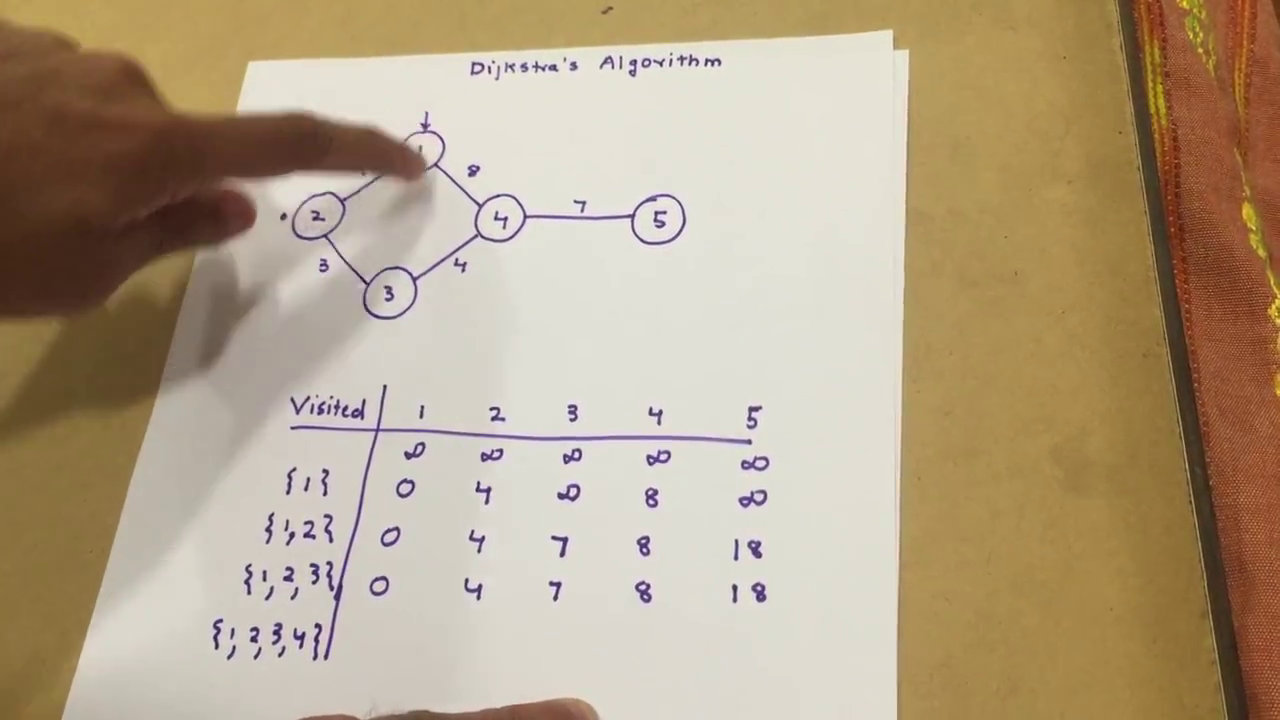 Dijkstra's Algorithm
1
8
2
4
7
5
3
4
3
Visited 1 2 3 4 5
∞ ∞ ∞ ∞ ∞
{1} 0 4 ∞ 8 ∞
{1,2} 0 4 7 8 18
{1,2,3} 0 4 7 8 18
{1,2,3,4}